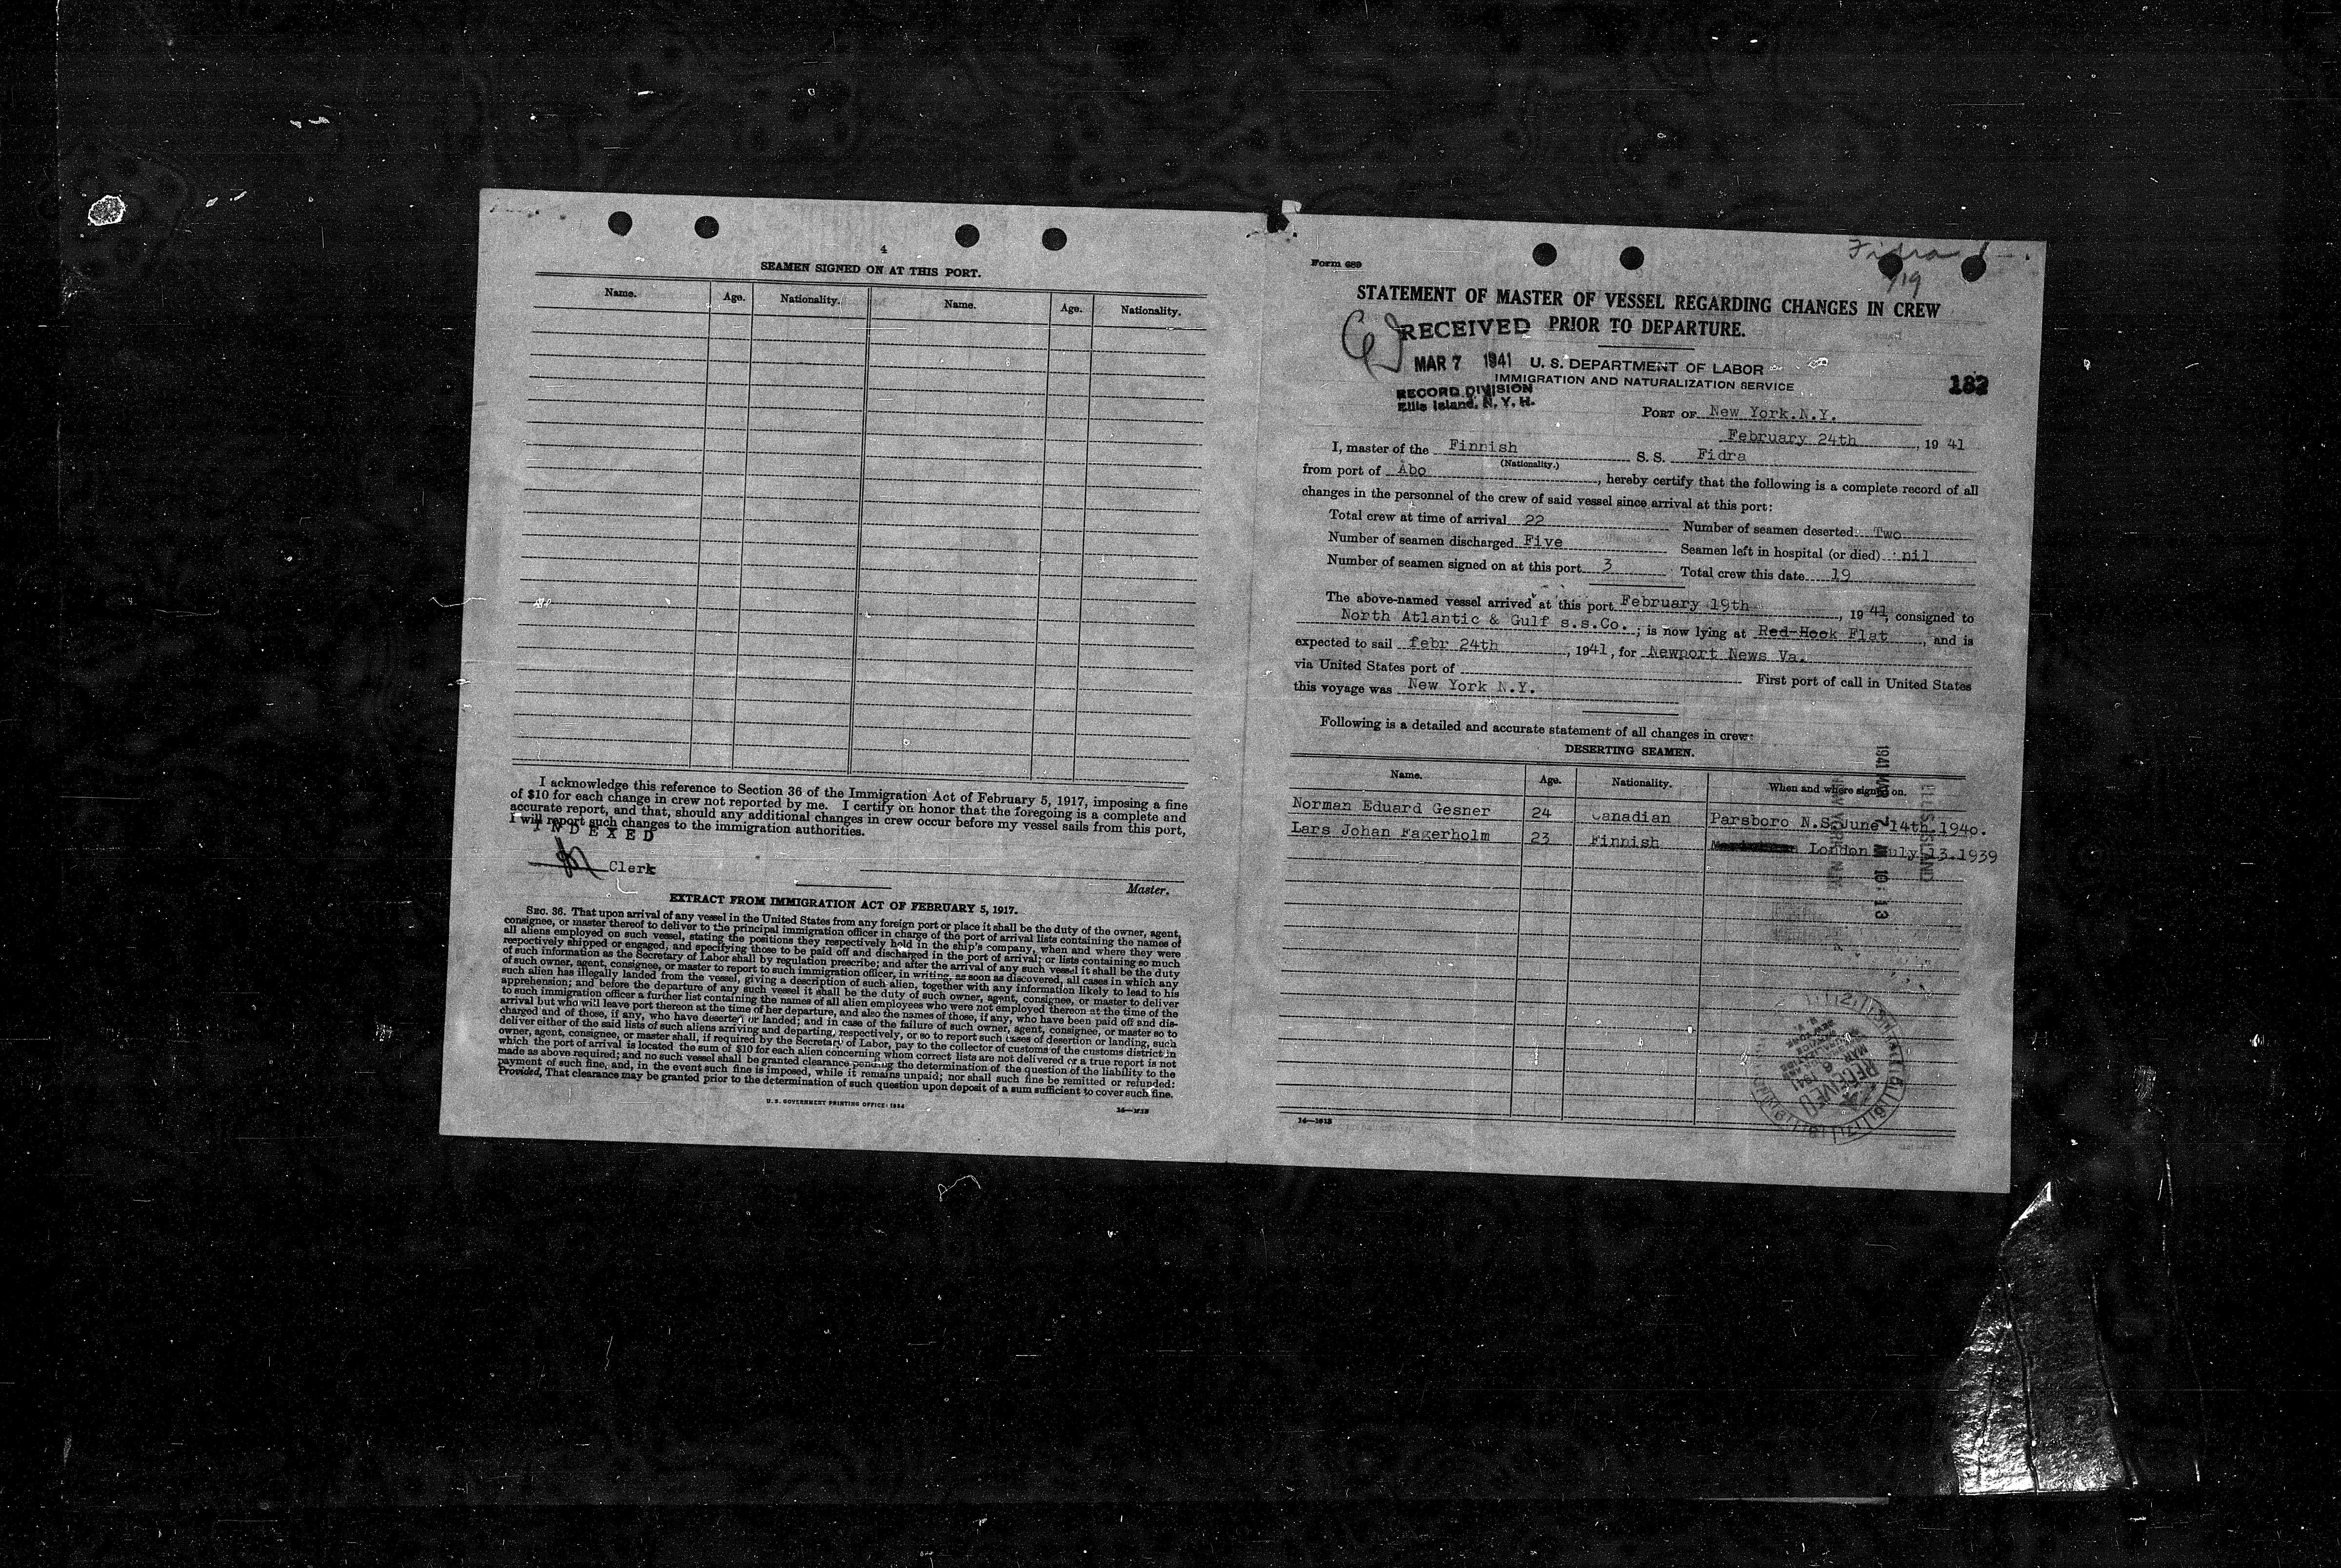 4
SEAMEN SIGNED ON AT THIS PORT.
Name. Age. Nationality. Name. Age. Nationality.
I acknowledge this reference to Section 36 of the Immigration Act of February 5, 1917, imposing a fine
of $10 for each change in crew not reported by me. I certify on honor that the foregoing is a complete and
accurate report, and that, should any additional changes in crew occur before my vessel sails from this port,
I will report such changes to the immigration authorities.
INDEXED
Clerk
Master.
EXTRACT FROM IMMIGRATION ACT OF FEBRUARY 5, 1917.
SEC. 36. That upon arrival of any vessel in the United States from any foreign port or place it shall be the duty of the owner, agent,
consignee, or master thereof to deliver to the principal immigration officer in charge of the port of arrival lists containing the names of
all aliens employed on such vessel, stating the positions they respectively hold in the ship's company, when and where they were
respectively shipped or engaged, and specifying those to be paid off and discharged in the port of arrival; or lists containing so much
of such information as the Secretary of Labor shall by regulation prescribe; and after the arrival of any such vessel it shall be the duty
of such owner, agent, consignee, or master to report to such immigration officer, in writing, as soon as discovered, all cases in which any
such alien has illegally landed from the vessel, giving a description of such alien, together with any information likely to lead to his
apprehension; and before the departure of any such vessel it shall be the duty of such owner, agent, consignee, or master to deliver
to such immigration officer a further list containing the names of all alien employees who were not employed thereon at the time of the
arrival but who will leave port thereon at the time of her departure, and also the names of those, if any, who have been paid off and dis-
charged and of those, if any, who have deserted or landed; and in case of the failure of such owner, agent, consignee, or master so to
deliver either of the said lists of such aliens arriving and departing, respectively, or so to report such cases of desertion or landing, such
owner, agent, consignee, or master shall, if required by the Secretary of Labor, pay to the collector of customs of the customs district in
which the port of arrival is located the sum of $10 for each alien concerning whom correct lists are not delivered or a true report is not
made as above required; and no such vessel shall be granted clearance pending the determination of the question of the liability to the
payment of such fine, and, in the event such fine is imposed, while it remains unpaid; nor shall such fine be remitted or refunded:
Provided, That clearance may be granted prior to the determination of such question upon deposit of a sum sufficient to cover such fine.
U. S. GOVERNMENT PRINTING OFFICE: 1934
Fidra
Form 689
STATEMENT OF MASTER OF VESSEL REGARDING CHANGES IN CREW
PRIOR TO DEPARTURE.
RECEIVED
MAR 7 1941
U. S. DEPARTMENT OF LABOR
IMMIGRATION AND NATURALIZATION SERVICE
RECORD DIVISION
Ellis Island, N. Y. H.
182
PORT OF New York.N.Y.
February 24th, 19 41
I, master of the Finnish S. S. Fidra
(Nationality.)
from port of Åbo, hereby certify that the following is a complete record of all
changes in the personnel of the crew of said vessel since arrival at this port:
Total crew at time of arrival 22 Number of seamen deserted: Two
Number of seamen discharged Five Seamen left in hospital (or died) nil
Number of seamen signed on at this port 3 Total crew this date 19
The above-named vessel arrived at this port February 19th, 19 41, consigned to
North Atlantic & Gulf s.s.Co.; is now lying at Red-Hook Flat, and is
expected to sail febr 24th, 1941, for Newport News Va.
via United States port of First port of call in United States
this voyage was New York N.Y.
Following is a detailed and accurate statement of all changes in crew:
DESERTING SEAMEN.
Name. Age. Nationality. When and where signed on.
Norman Eduard Gesner 24 Canadian Parsboro N.S. June 14th 1940.
Lars Johan Fagerholm 23 Finnish London July 13.1939
1941 MAR 7 AM 10:13
ELLIS ISLAND
RECEIVED
MAR 6 1941